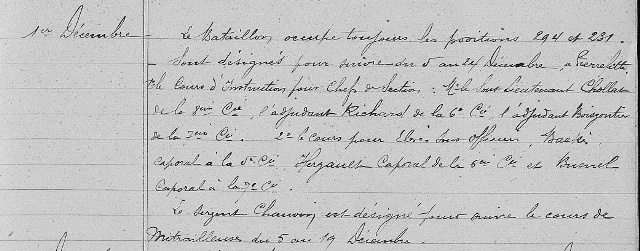 1er Décembre - Le Bataillon occupe toujours les positions 294 et 231.
- Sont désignés pour suivre du 5 au 24 Décembre, à Pierrefitte
le cours d'Instruction pour Chefs de Section : Mr le Sous Lieutenant Chollet
de la 8eme Cie, l'adjudant Richard de la 6e Cie, l'adjudant
de la 7eme Cie. 2° le cours pour Elèves sous officiers,
caporal à la 5e Cie, Hergault Caporal de la 6eme Cie et Busnel
Caporal à la 7e Cie.
Le sergent Chauvin, est désigné pour suivre le cours de
Mitrailleuses du 5 au 19 Décembre.